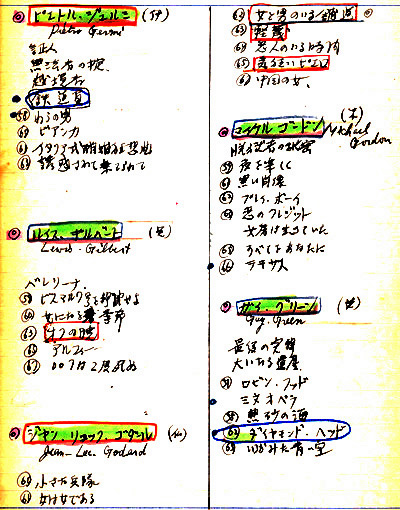 ピエトル・ジェルミ (伊)
Pietro Germi
無法者の掟
越境者
鉄道員
58 わらの男
60 ビアンカ
63 イタリア式離婚狂想曲
64 誘惑されて棄てられて
ルイス・ギルバート (英)
Lewis Gilbert
ベレリーナ
59 ビスマルク号を撃沈せよ
66 アルフィー
67 007は2度死ぬ
ジャン・リュック・ゴダール (仏)
Jean-Luc Godard
小さな兵隊
女は女である
女と男のいる舗道
軽蔑
恋人のいる時間
気狂いピエロ
中国の女
マイケル・ゴードン (米)
Michael Gordon
夜を楽しく
黒い肖像
プレイ・ボーイ
恋のクレジット
すべてをあなたに
66 テキサス
ガイ・グリーン (英)
Guy Green
ロビン・フッド
ミスオペラ
熱砂の海
ダイヤモンド・ヘッド
いつか見た青い空